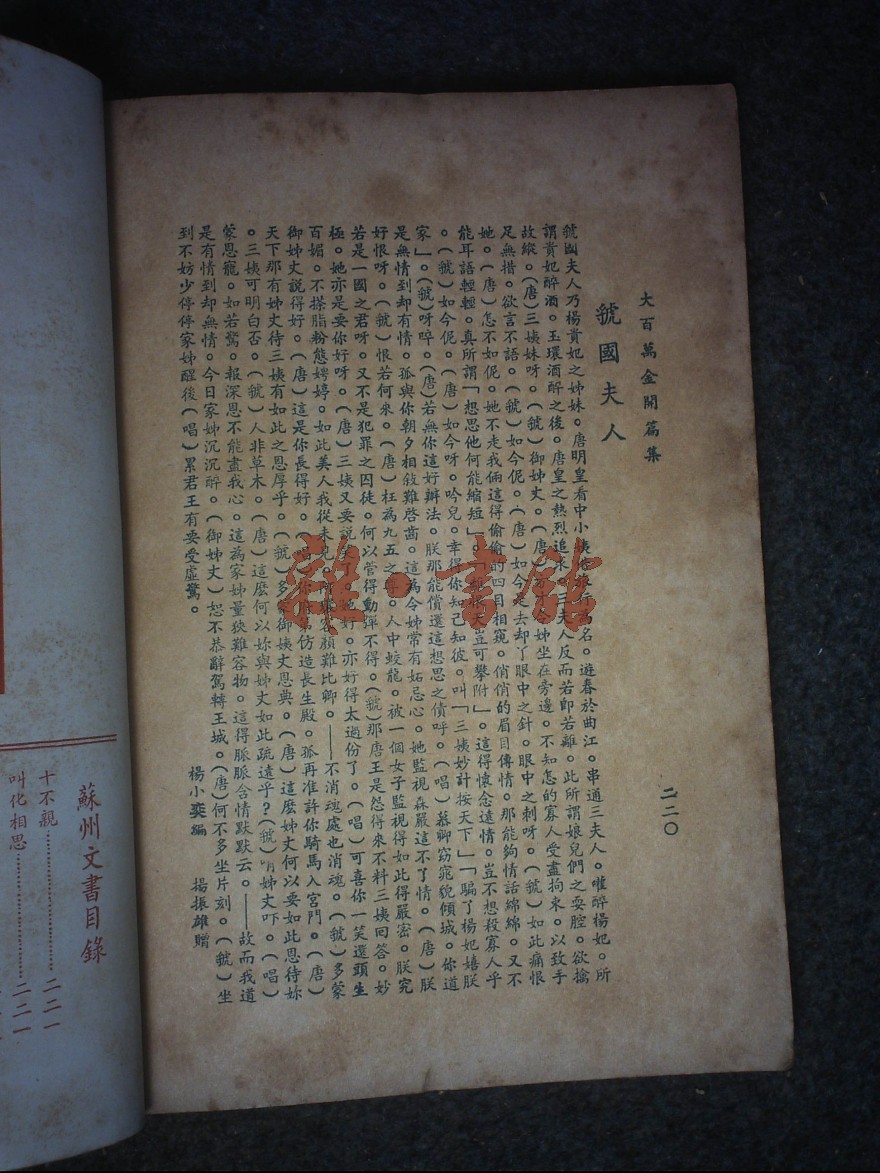 大百萬金開篇集
二二〇
虢國夫人
虢國夫人乃楊貴妃之姊妹。唐明皇看中小姨 為名。遊春於曲江。串通三夫人。嚾醉楊妃。所
謂貴妃醉酒。玉環酒醉之後。唐皇之熱烈追求。三夫人反而若卽若離。此所謂娘兒們之耍腔。欲擒
故縱。(唐)三姨妹呀。(虢)御姊丈。(唐) 令姊坐在旁邊。不知怎的寡人受盡拘束。以致手
足無措。欲言不語。(虢)如今伲。(唐)如今走去却了眼中之針。眼中之刺呀。(虢)如此痛恨
她。(唐)怎不如伲。她不走我倆這得偷偷的四目相窺。俏俏的眉目傳情。那能夠情話綿綿。又不
能耳語輕輕。真所謂「想思他何能縮短」。 天豈可攀附」。這得懷念遠情。豈不想殺寡人乎
。(虢)如今伲。(唐)如今呀。吟兒。幸得你知己知彼。叫「三姨妙計按天下」「騙了楊妃嬉朕
家」。(虢)呀啐。(唐)若無你這好辦法。朕那能償還這想思之債呼。(唱)慕卿窈窕貌傾城。你道
是無情到却有情。孤與你朝夕相敘難啓齒。這為令姊常有妬忌心。她監視森嚴這不了情。(唐)朕
好恨呀。(虢)恨若何來。(唐)枉為九五之尊。人中蛟龍。被一個女子監視得如此得嚴密。朕究
若是一國之君呀。又不是犯罪之囚徒。何以管得動彈不得。(虢)那唐王是怨得來不料三姨回答。妙
極。她亦是要你好呀。(唐)三姨又要說笑了。她好。亦好得太過份了。(唱)可喜你一笑還頭生
百媚。不搽脂粉態娉婷。如此美人我從未見。 容顏難比卿。——不消魂處也消魂。(虢)多蒙
御姊丈說得好。(唐)這是你長得好。 你 仿造長生殿。孤再准許你騎馬入宮門。(唐)
天下那有姊丈待三姨有如此之恩厚乎。(虢)多 御姨丈恩典。(唐)這麼姊丈何以要如此恩待妳
。三姨可明白否。(虢)人非草木。(唐)這麼何以妳與姊丈如此疏遠乎?(虢) 姊丈吓。(唱)
蒙恩寵。如若驚。報深恩不能盡我心。這為家姊量狹難容物。這得脈脈含情默默云。——故而我道
是有情到却無情。今日家姊沉沉醉。(御姊丈)恕不恭辭駕轉王城。(唐)何不多坐片刻。(虢)坐
到不妨少停停家姊醒後(唱)累君王有要受虛驚。
楊小奕編 揚振雄贈
雜·書館
蘇州文書目錄
十不親………………二二一
叫化相思……………二二一